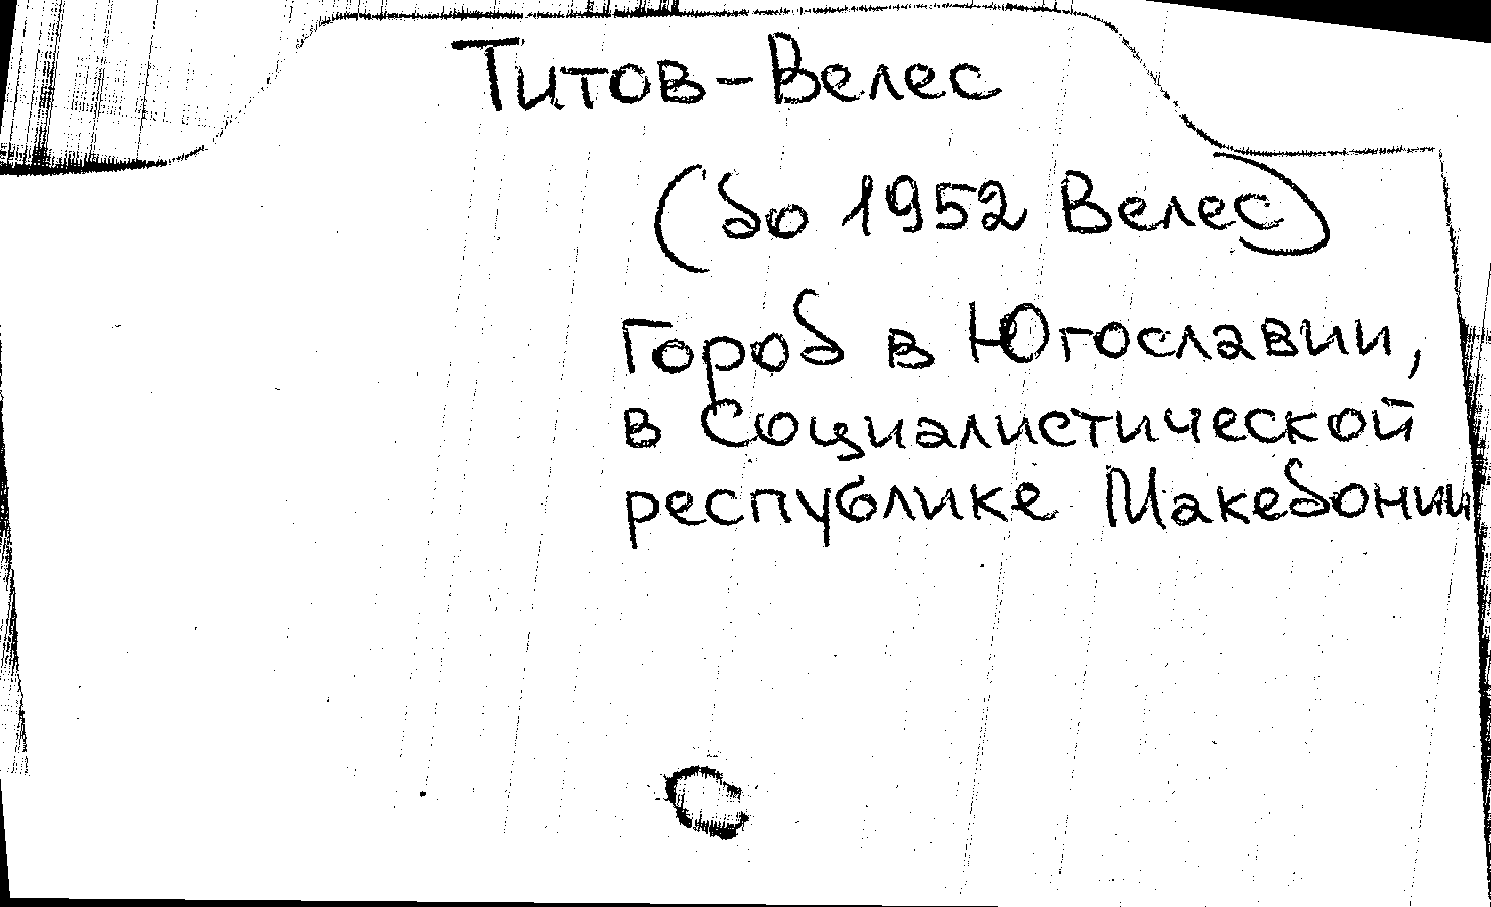 Титов-Велес
(до 1952 Велес)
Город в Югославии,
в Социалистической
республике Македонии